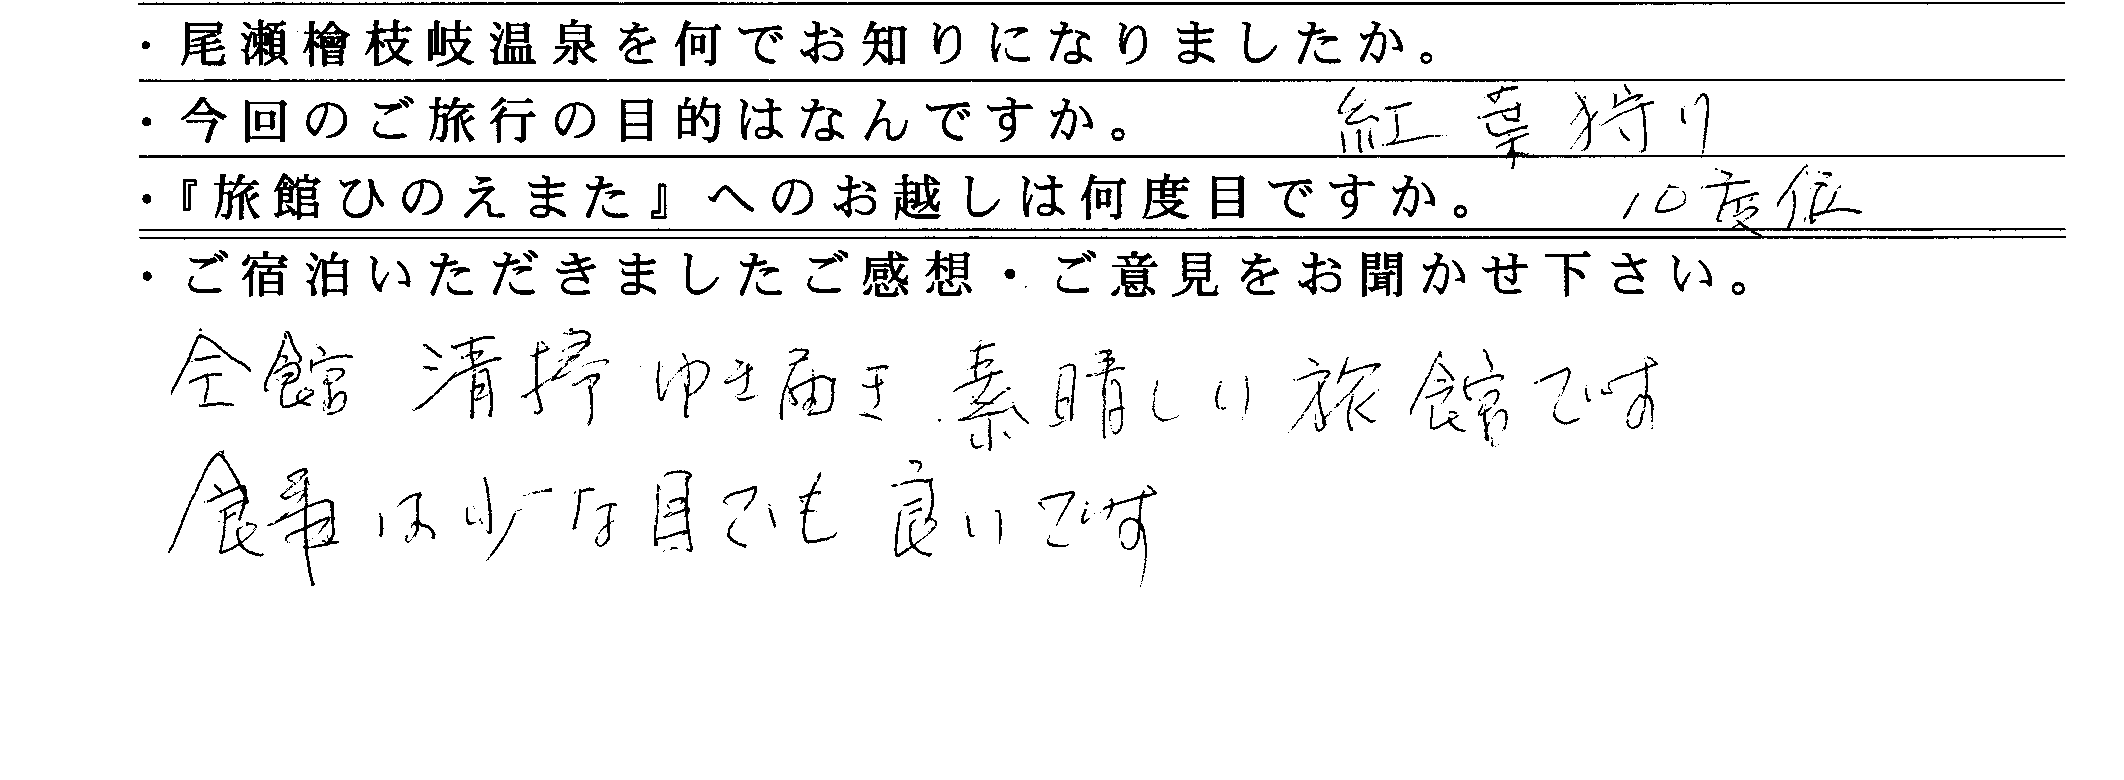 ・尾瀬檜枝岐温泉を何でお知りになりましたか。
・今回のご旅行の目的はなんですか。 紅葉狩り
・『旅館ひのえまた』へのお越しは何度目ですか。 10度位
・ご宿泊いただきましたご感想・ご意見をお聞かせ下さい。
全館 清掃ゆき届き素晴しい旅館です
食事は少な目でも良いです